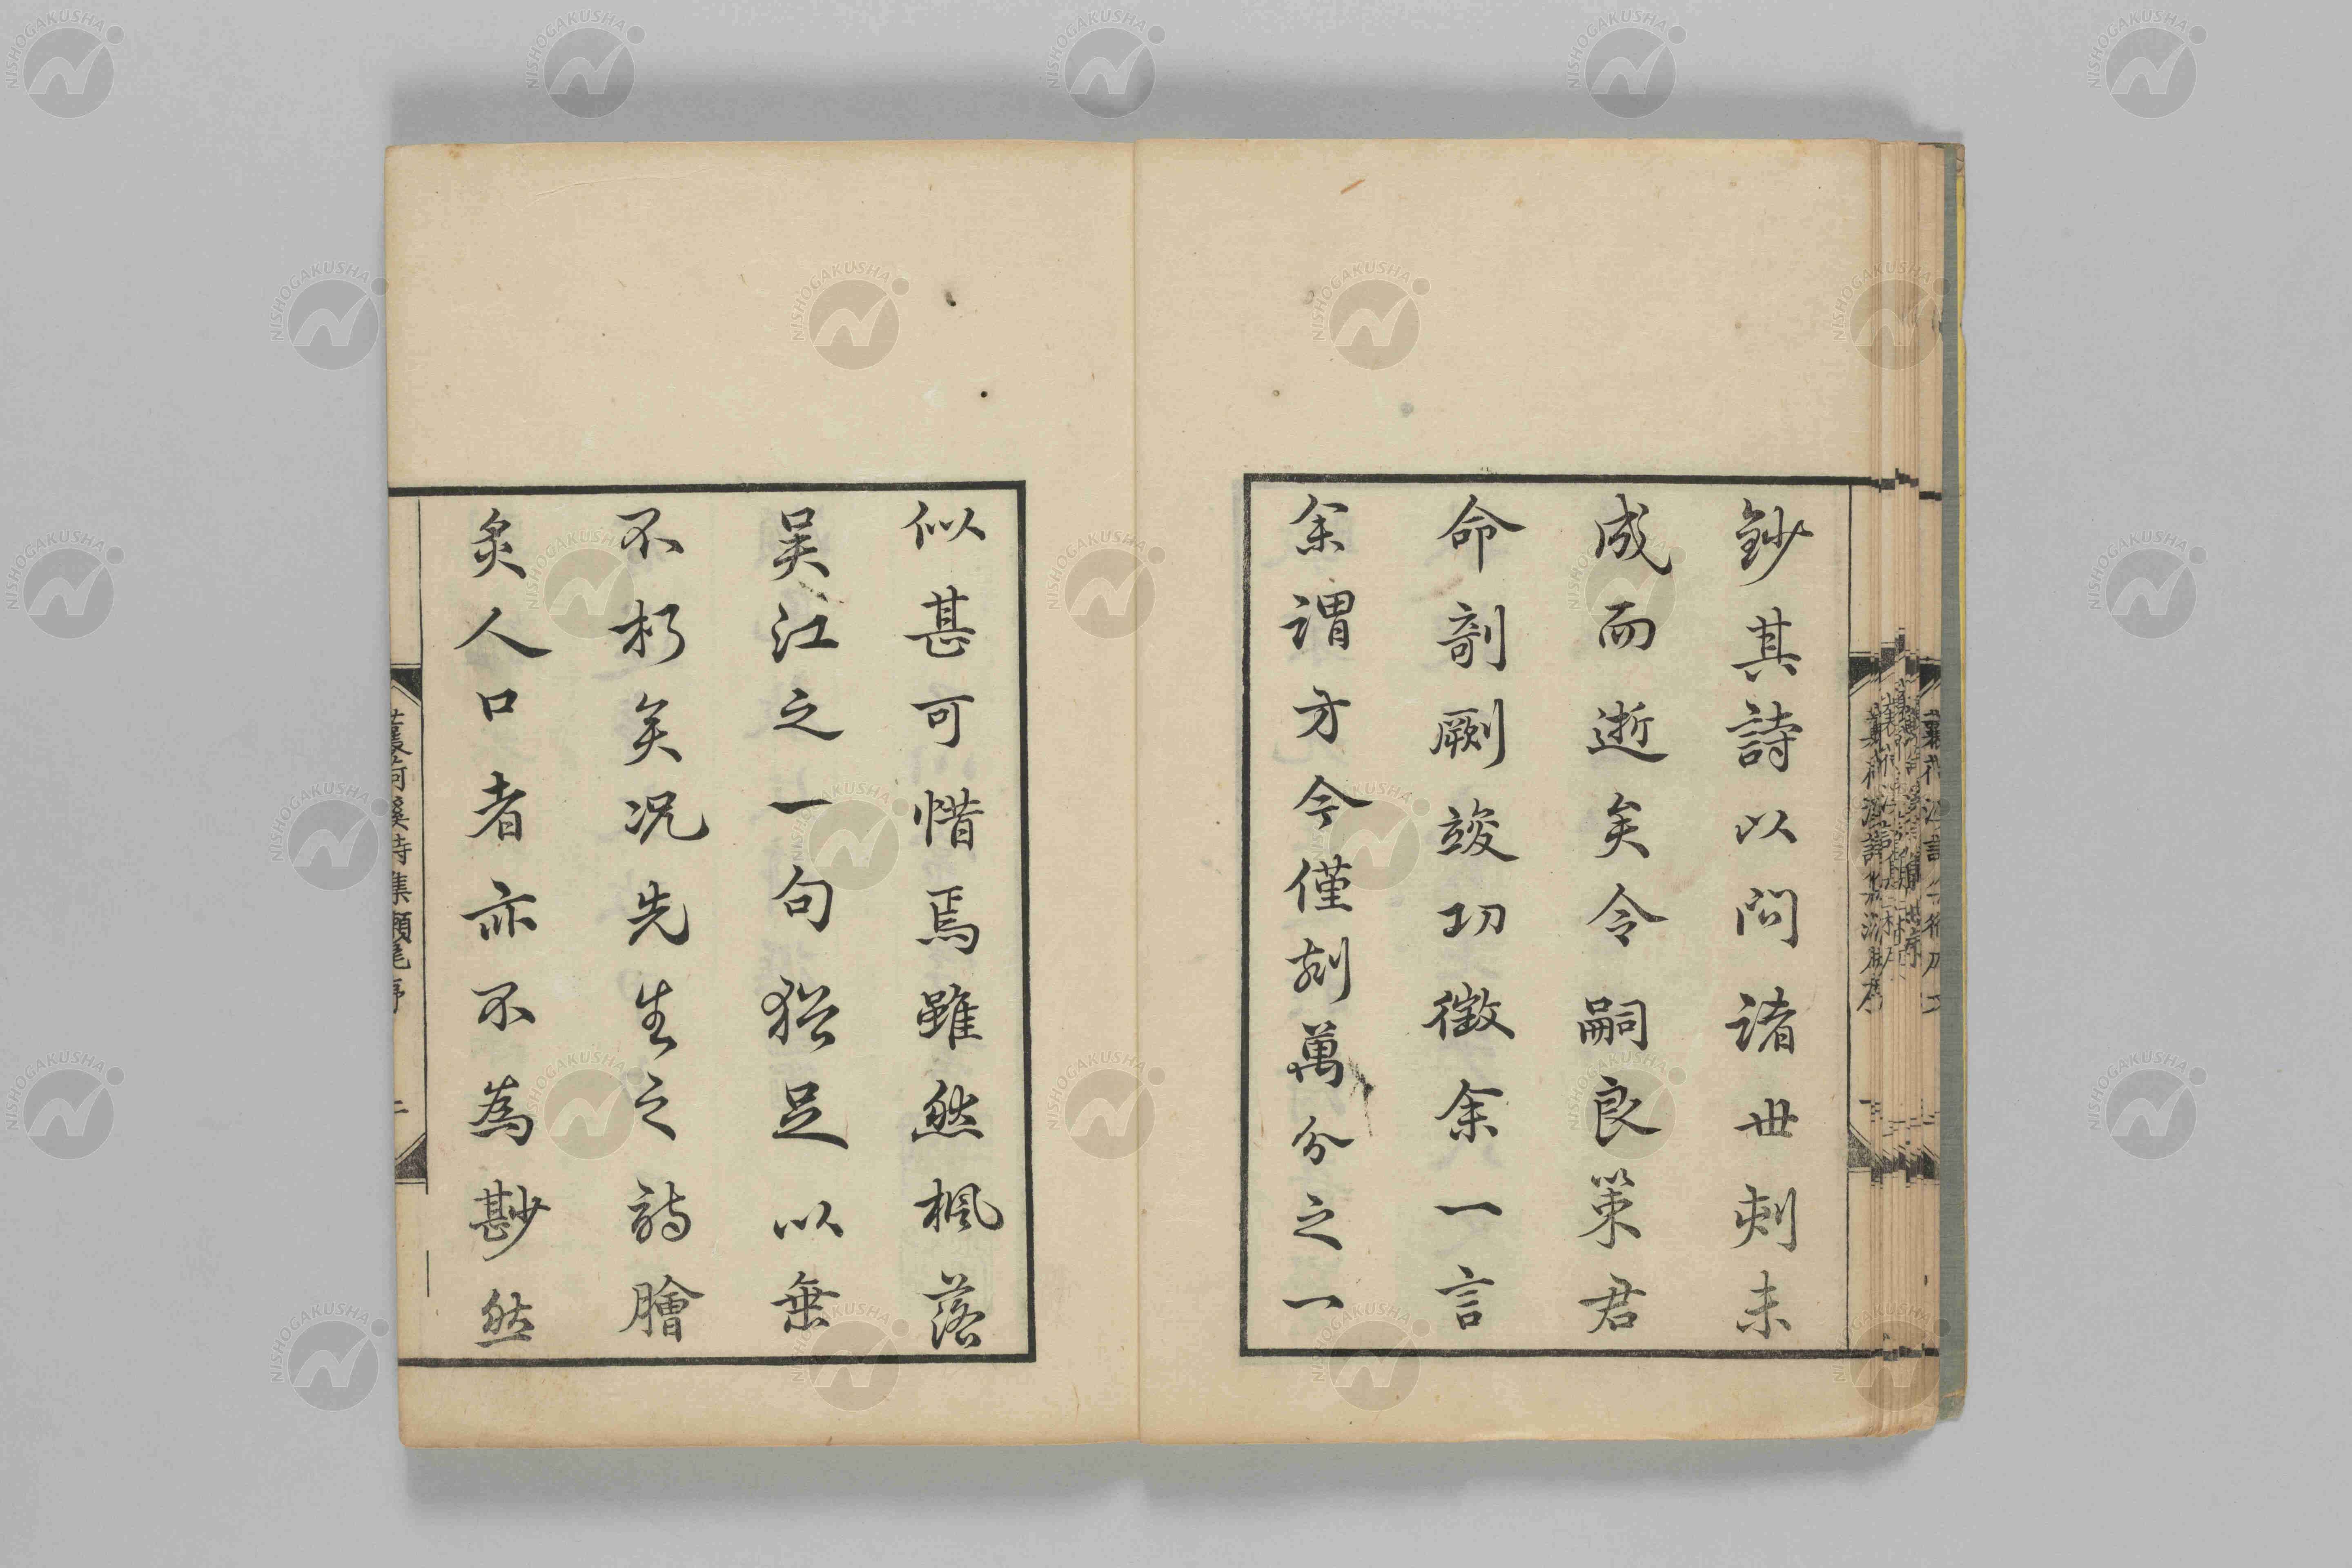 鈔其詩以問諸世刻未
成而逝矣令嗣良策君
命剞劂竣功徵余一言
余謂方今僅刻萬分之一
似甚可惜焉雖然楓落
吳江之一句猶足以垂
不朽矣況先生之詩膾
炙人口者亦不為尠然
蘘荷溪詩集瀬尾序
二
NISHOGAKUSHA